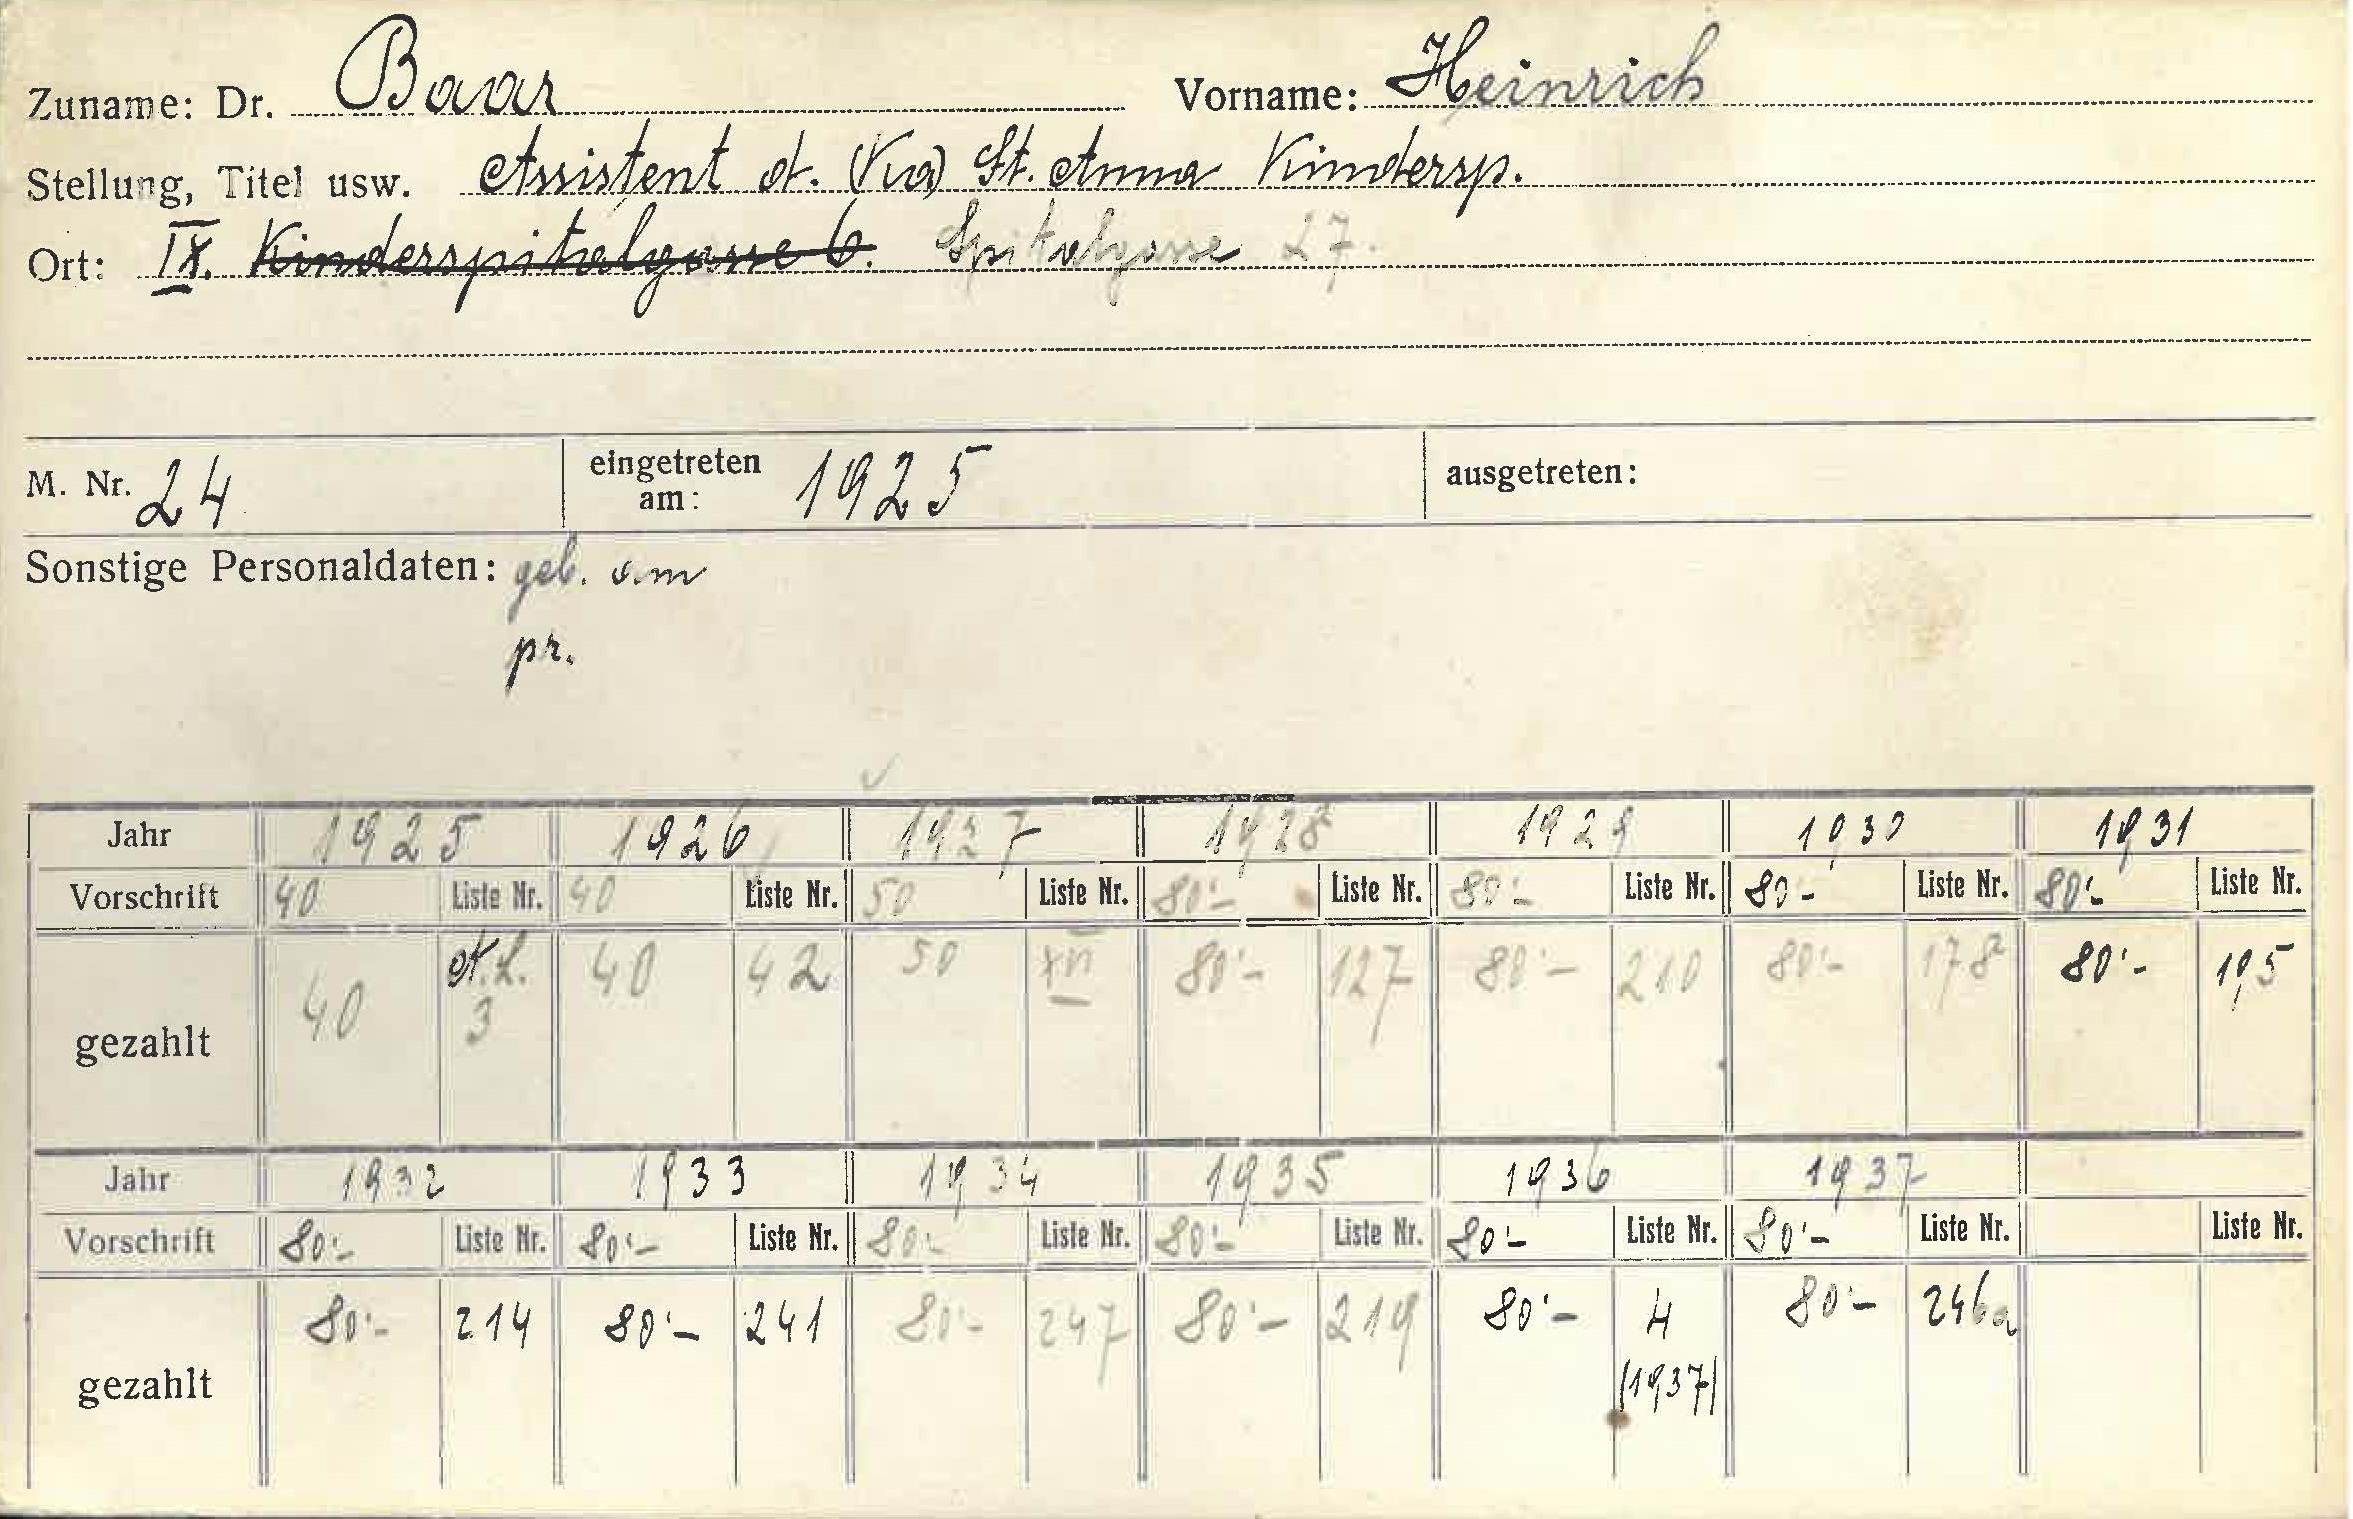 Zuname: Dr. Baar Vorname: Heinrich
Stellung, Titel usw. Assistent d. (Ka) St. Anna Kindersp.
Ort: IX. Kinderspitalgasse 6. Spitalgasse 27.
M. Nr. 24 eingetreten am: 1925 ausgetreten:
Sonstige Personaldaten: geb. am
pr.
Jahr 1925 1926 1927 1928 1929 1930 1931
Vorschrift 40 Liste Nr. 40 Liste Nr. 50 Liste Nr. 80'- Liste Nr. 80'- Liste Nr. 80'- Liste Nr. 80'- Liste Nr.
gezahlt 40 3 40 42 50 XII 80'- 127 80'- 210 80'- 178 80'- 195
Jahr 1932 1933 1934 1935 1936 1937
Vorschrift 80'- Liste Nr. 80'- Liste Nr. 80'- Liste Nr. 80'- Liste Nr. 80'- Liste Nr. 80'- Liste Nr. Liste Nr.
gezahlt 80'- 214 80'- 241 80'- 247 80'- 219 80'- 4 80'- 246a
(1937)